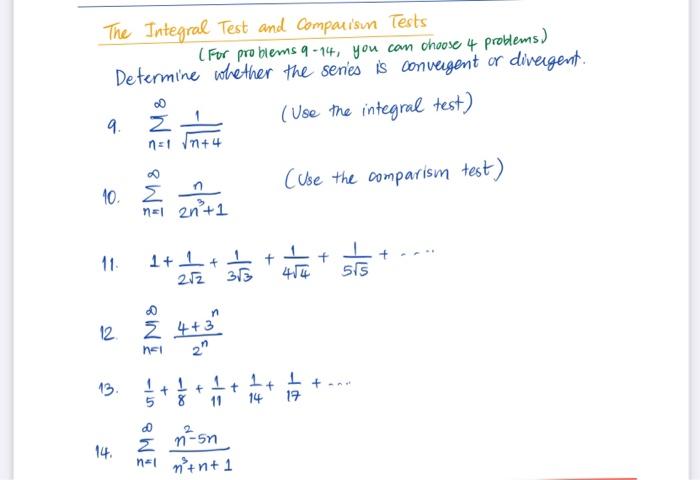 The Integral Test and Comparison Tests
(For problems 9-14, you can choose 4 problems)
Determine whether the series is convergent or divergent.
9. ∞ Σ n=1 1/√(n+4) (Use the integral test)
10. ∞ Σ n=1 n/(2n³+1) (Use the comparism test)
11. 1 + 1/(2√2) + 1/(3√3) + 1/(4√4) + 1/(5√5) + ....
12. ∞ Σ n=1 (4+3ⁿ)/2ⁿ
13. 1/5 + 1/8 + 1/11 + 1/14 + 1/17 + ....
14. ∞ Σ n=1 (n²-5n)/(n³+n+1)